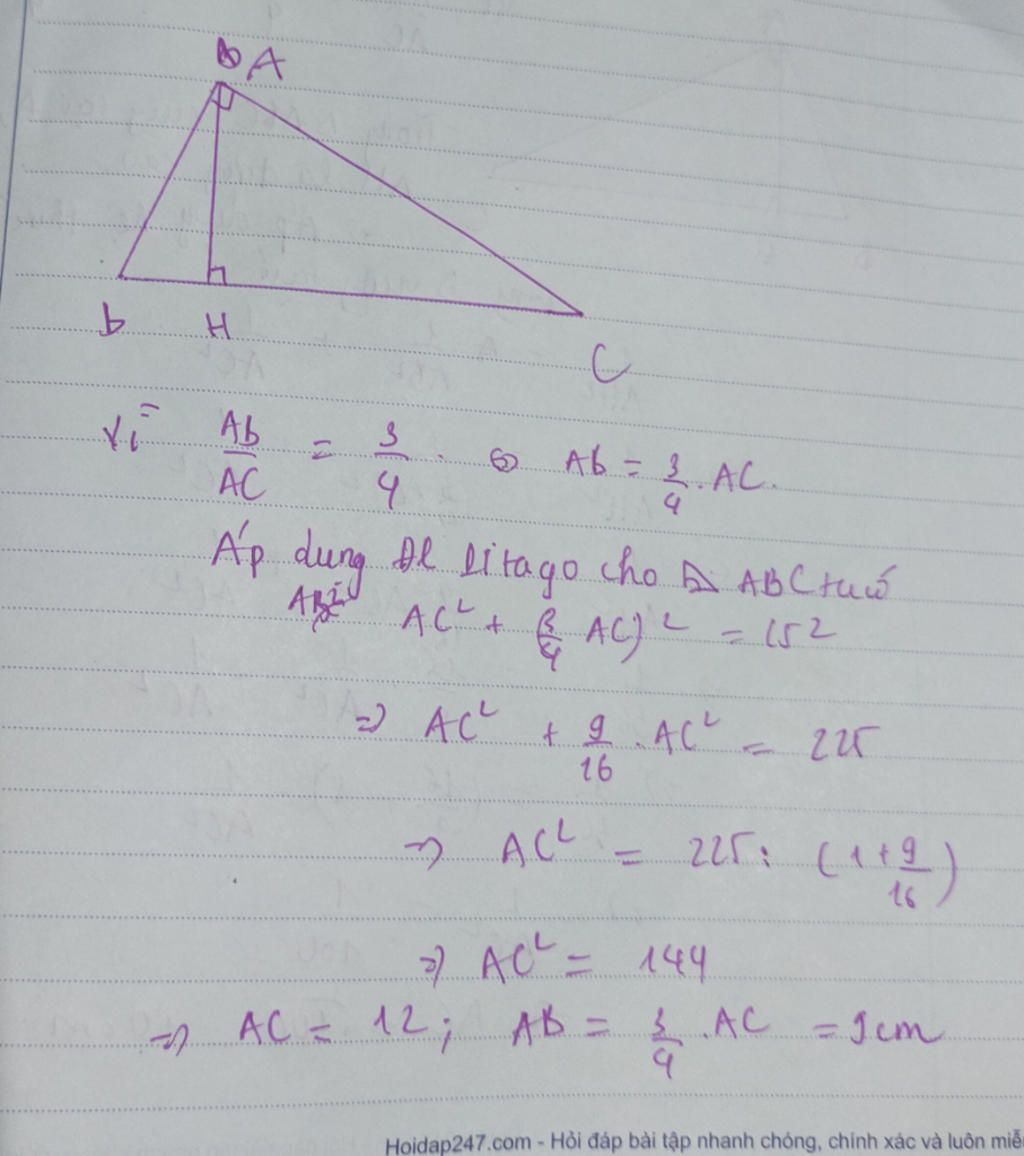 A
b H
C
Vì Ab/AC = 3/4 . ⇔ Ab = 3/4 . AC.
Áp dung Đl Pitago cho △ ABC
AC² + (3/4 AC)² = 15²
=> AC² + 9/16 . AC² = 225
=> AC² = 225 : (1 + 9/16)
=> AC² = 144
=> AC = 12 ; AB = 3/4 . AC = 9cm
Hoidap247.com - Hỏi đáp bài tập nhanh chóng, chính xác và luôn